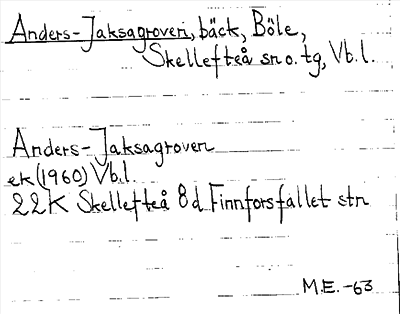 Anders-Jaksagroven, bäck, Böle,
Skellefteå sn o. tg, Vb. l.
Anders-Jaksagroven
ek (1960) Vb. l.
22K Skellefteå 8d Finnforsfallet stn
M.E. -63